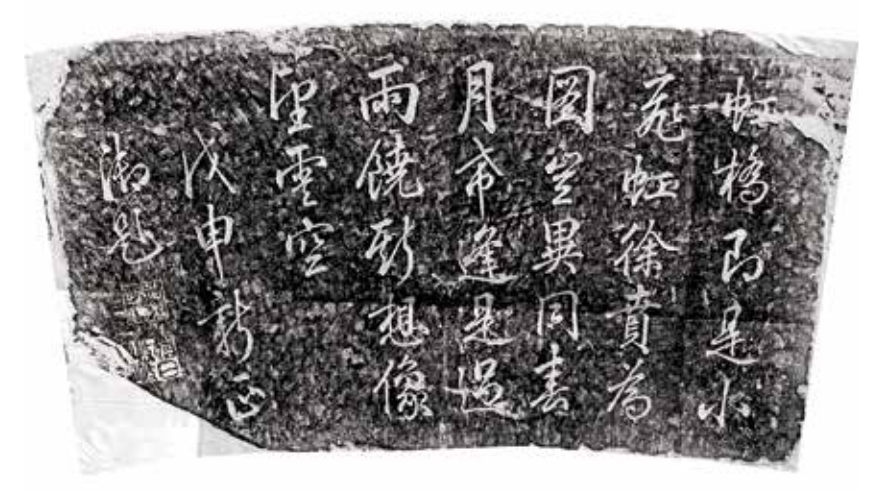 虹橋即是小
飛虹徐賁為
圖豈異同春
月希逢是過
雨饒斯想像
望雲空
戊申新正
御題